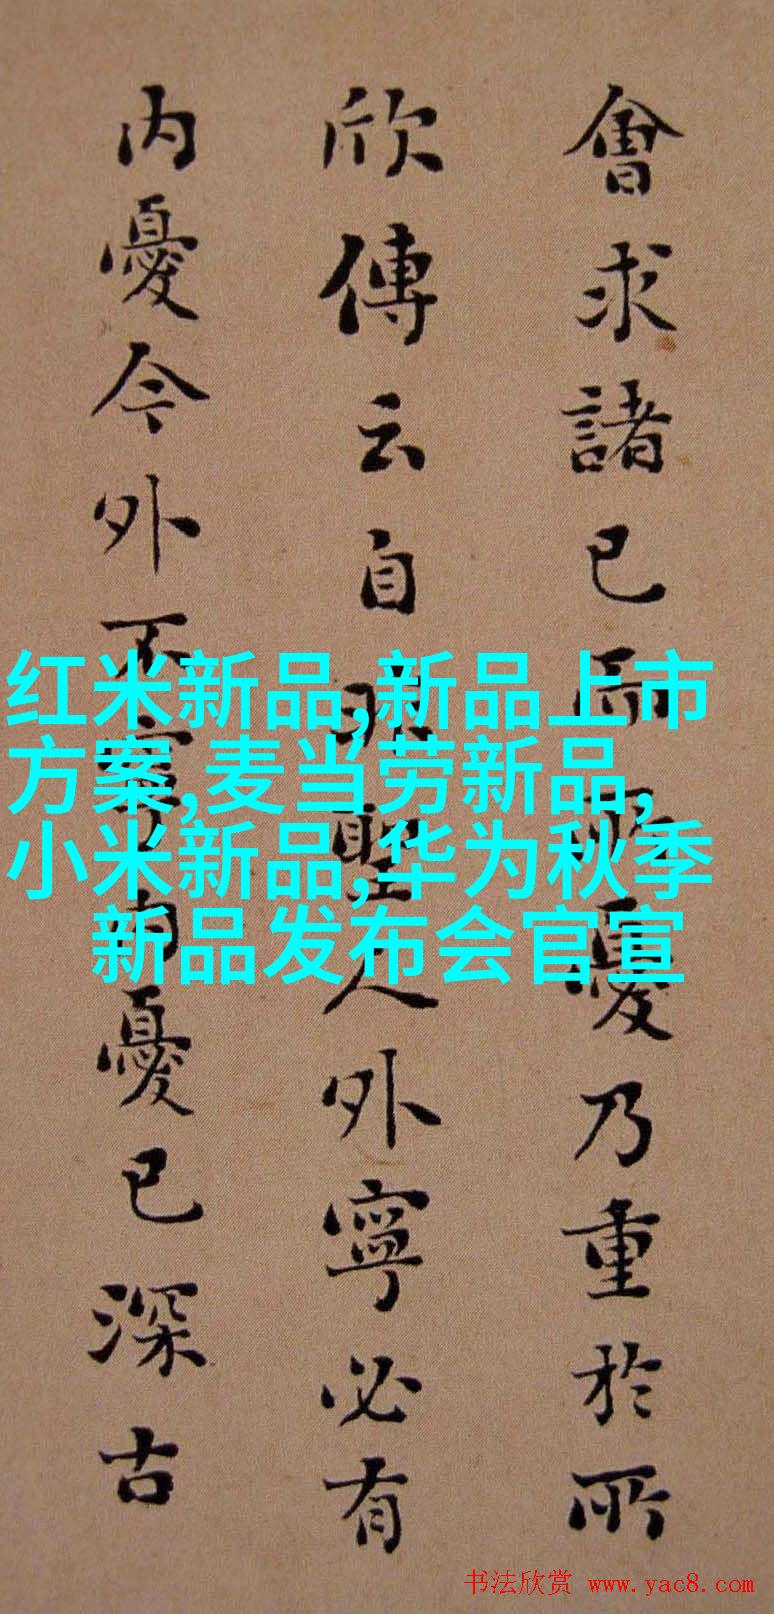 會求諸已而所憂乃重於所
欣傳云自非聖人外寧必有
内憂今外不寧内憂已深古
红米新品,新品上市
方案,麦当劳新品,
小米新品,华为秋季
新品发布会官宣
书法欣赏 www.yac8.com